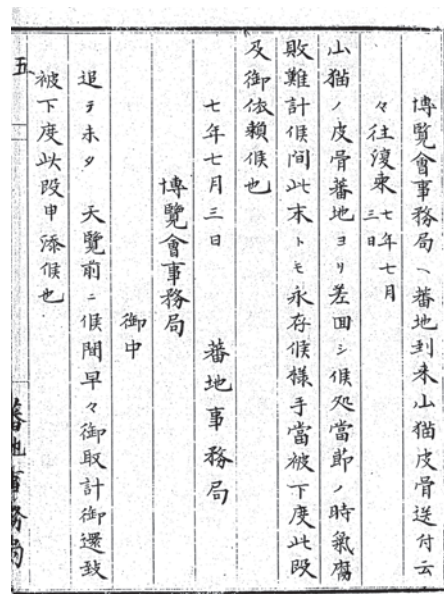 博覽會事務局ヘ蕃地到来山猫皮骨送付云
々往復案 七年七月
三日
山猫ノ皮骨蕃地ヨリ差回シ候処當節ノ時氣腐
敗難計候間此末トモ永存候様手當被下度此段
及御依頼候也
七年七月三日
蕃地事務局
博覽會事務局
御中
追テ未タ 天覽前ニ候間早々御取計御還致
被下度此段申添候也
五
蕃地事務局